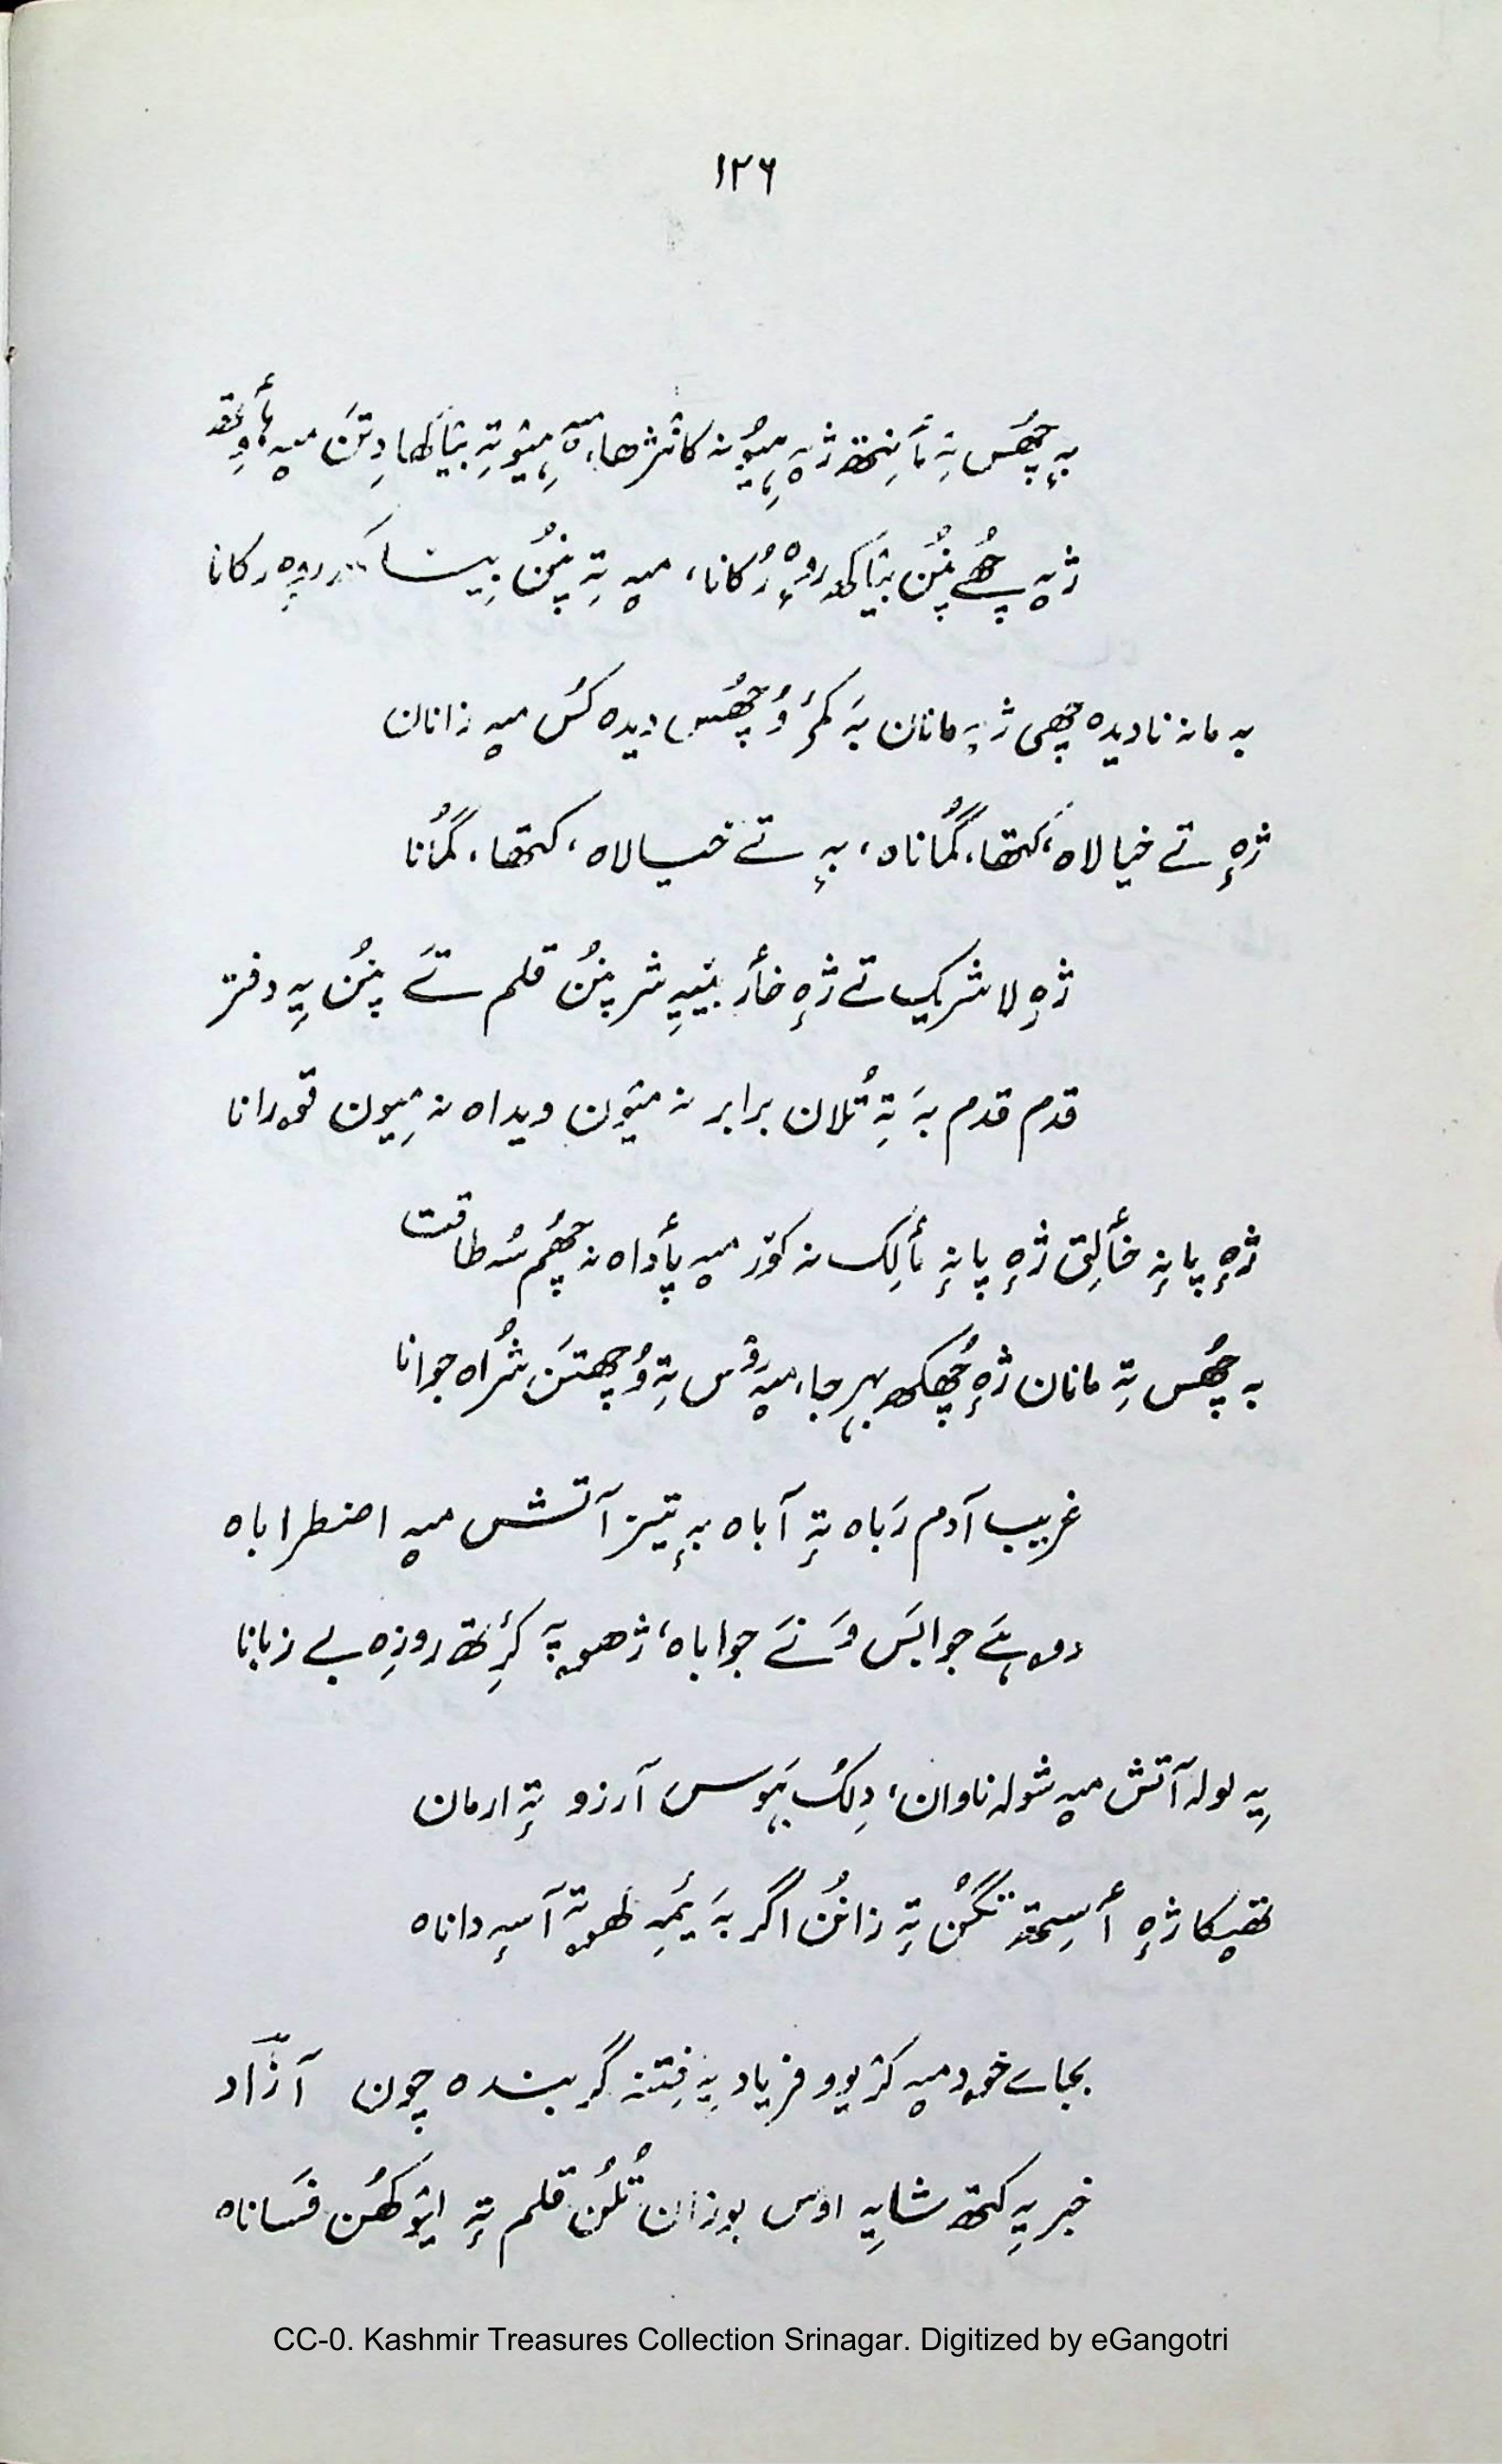 ۱۲۶
بہٕ چھُس تہٕ مٲنِتھ ژٕہ میٛۆن کانژھا، میٛۆتہٕ دِتَن میہ ہٲوِتھ
ژیہ چھُے پنُن رُکانا، میہ تہٕ پنُن رکانا
بہ مانہ نادیدہ چھی ژیہ مانان بہَ کمۍ وُچھُس دیدہ کُس میہ زانان
ژٕہ تے خیالاہ، کتھا، گُماناہ، بہٕ تے خیالاہ، کتھا، گُمانا
ژٕہ لاشریک تے ژٕہ خٲر بیٚیہِ شر پنُن قلم تےَ پنُن یہِ دفتر
قدم قدم بہَ تہٕ تُلان برابر نہ میٛون ویداہ نہ میٛون قورانا
ژٕہ پانہٕ خٲلِق ژٕہ پانہٕ مٲلِک نہ کوٚر میہ پٲداہ نہ چھُم سُہ طاقت
بہ چھُس تہٕ مانان ژٕہ چھُکھ بہر جا، میہ تہٕ وُچھتَن شُراہ جوانا
غریب آدم رَباہ تہٕ آباہ بہٕ تیز آتش میہ اضطراباہ
دوہےَ جوابَس وَنےَ جواباہ، ژھوپہ کٔرِتھ روزِہ بے زبانا
یہِ لولہ آتش میہ شولہ ناوان، دِلُک ہَوس آرزو تہٕ ارمان
تھپکا ژٕہ أسِتھ تنگُن تہٕ زانُن اگر بہَ یَمہِ کھوتہٕ آسہٕ داناہ
بجاے خود میہ کرٛیوو فریاد یہِ فِتنہ گر بندہ چون آزاد
خبر یہِ کتھ شایہِ اوس بوزان تُلُن قلم تہٕ لیوٚکھُن فَساناہ
CC-0. Kashmir Treasures Collection Srinagar. Digitized by eGangotri